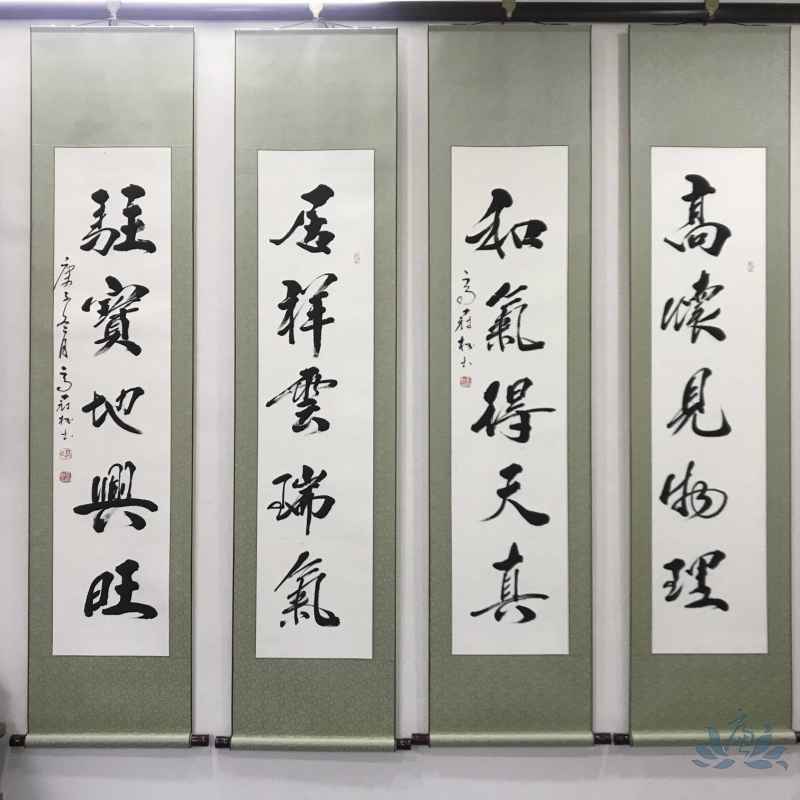 高懷見物理
和氣得天真
高蔚松书
居祥雲瑞氣
駐寶地興旺
庚子冬月高蔚松书